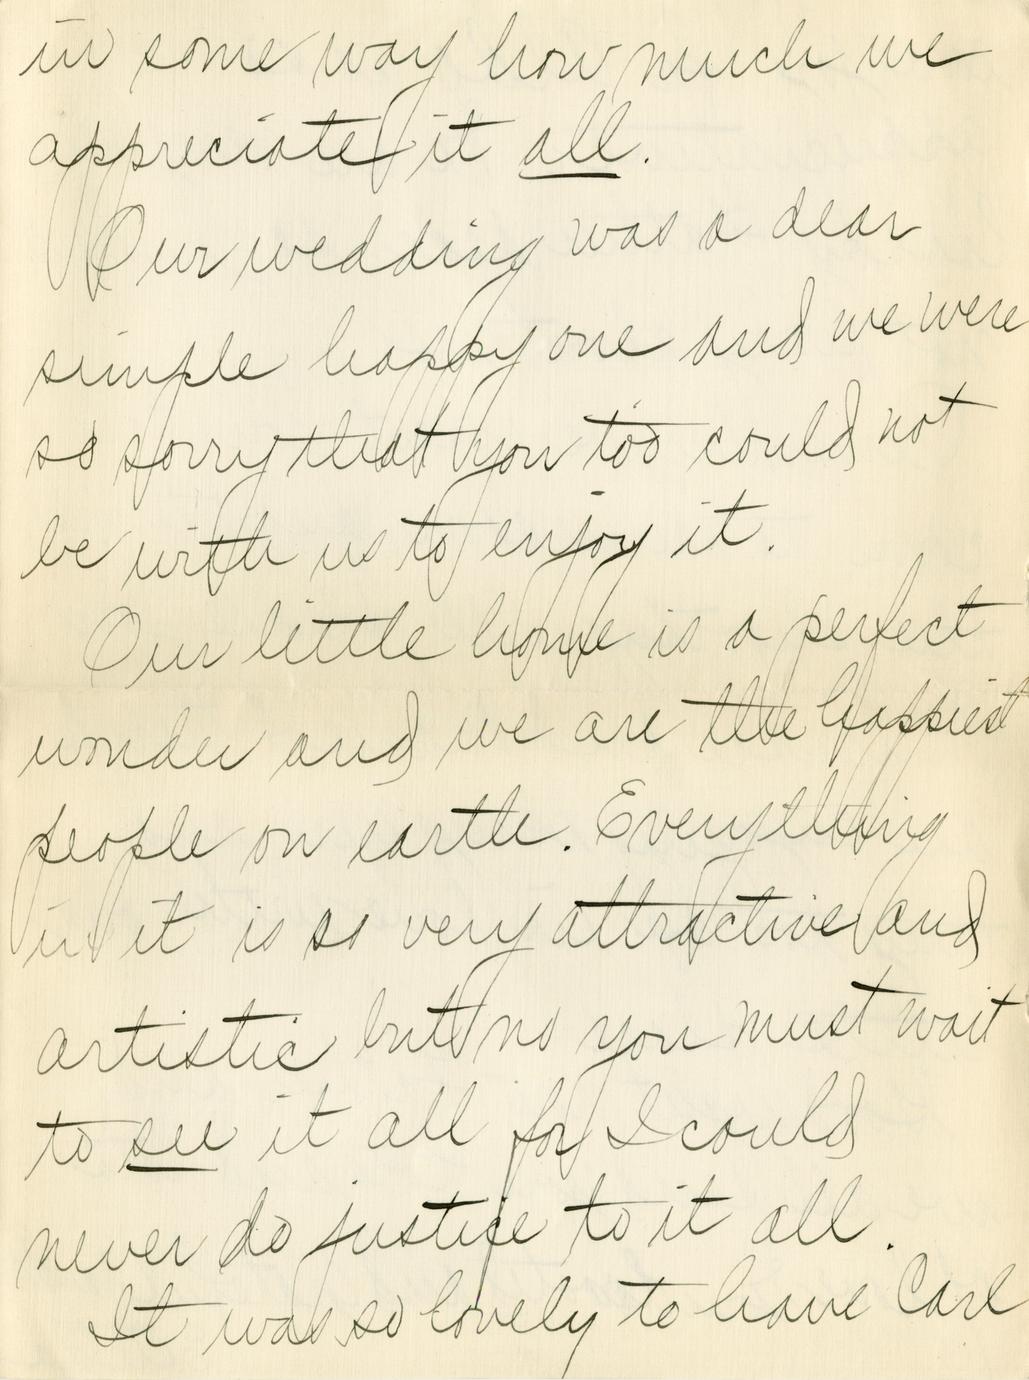 in some way how much we
appreciate it all.
Our wedding was a dear
simple happy one and we were
so sorry that you too could not
be with us to enjoy it.
Our little home is a perfect
wonder and we are the happiest
people on earth. Everything
in it is so very attractive and
artistic but no you must wait
to see it all for I could
never do justice to it all.
It was so lovely to have Carl